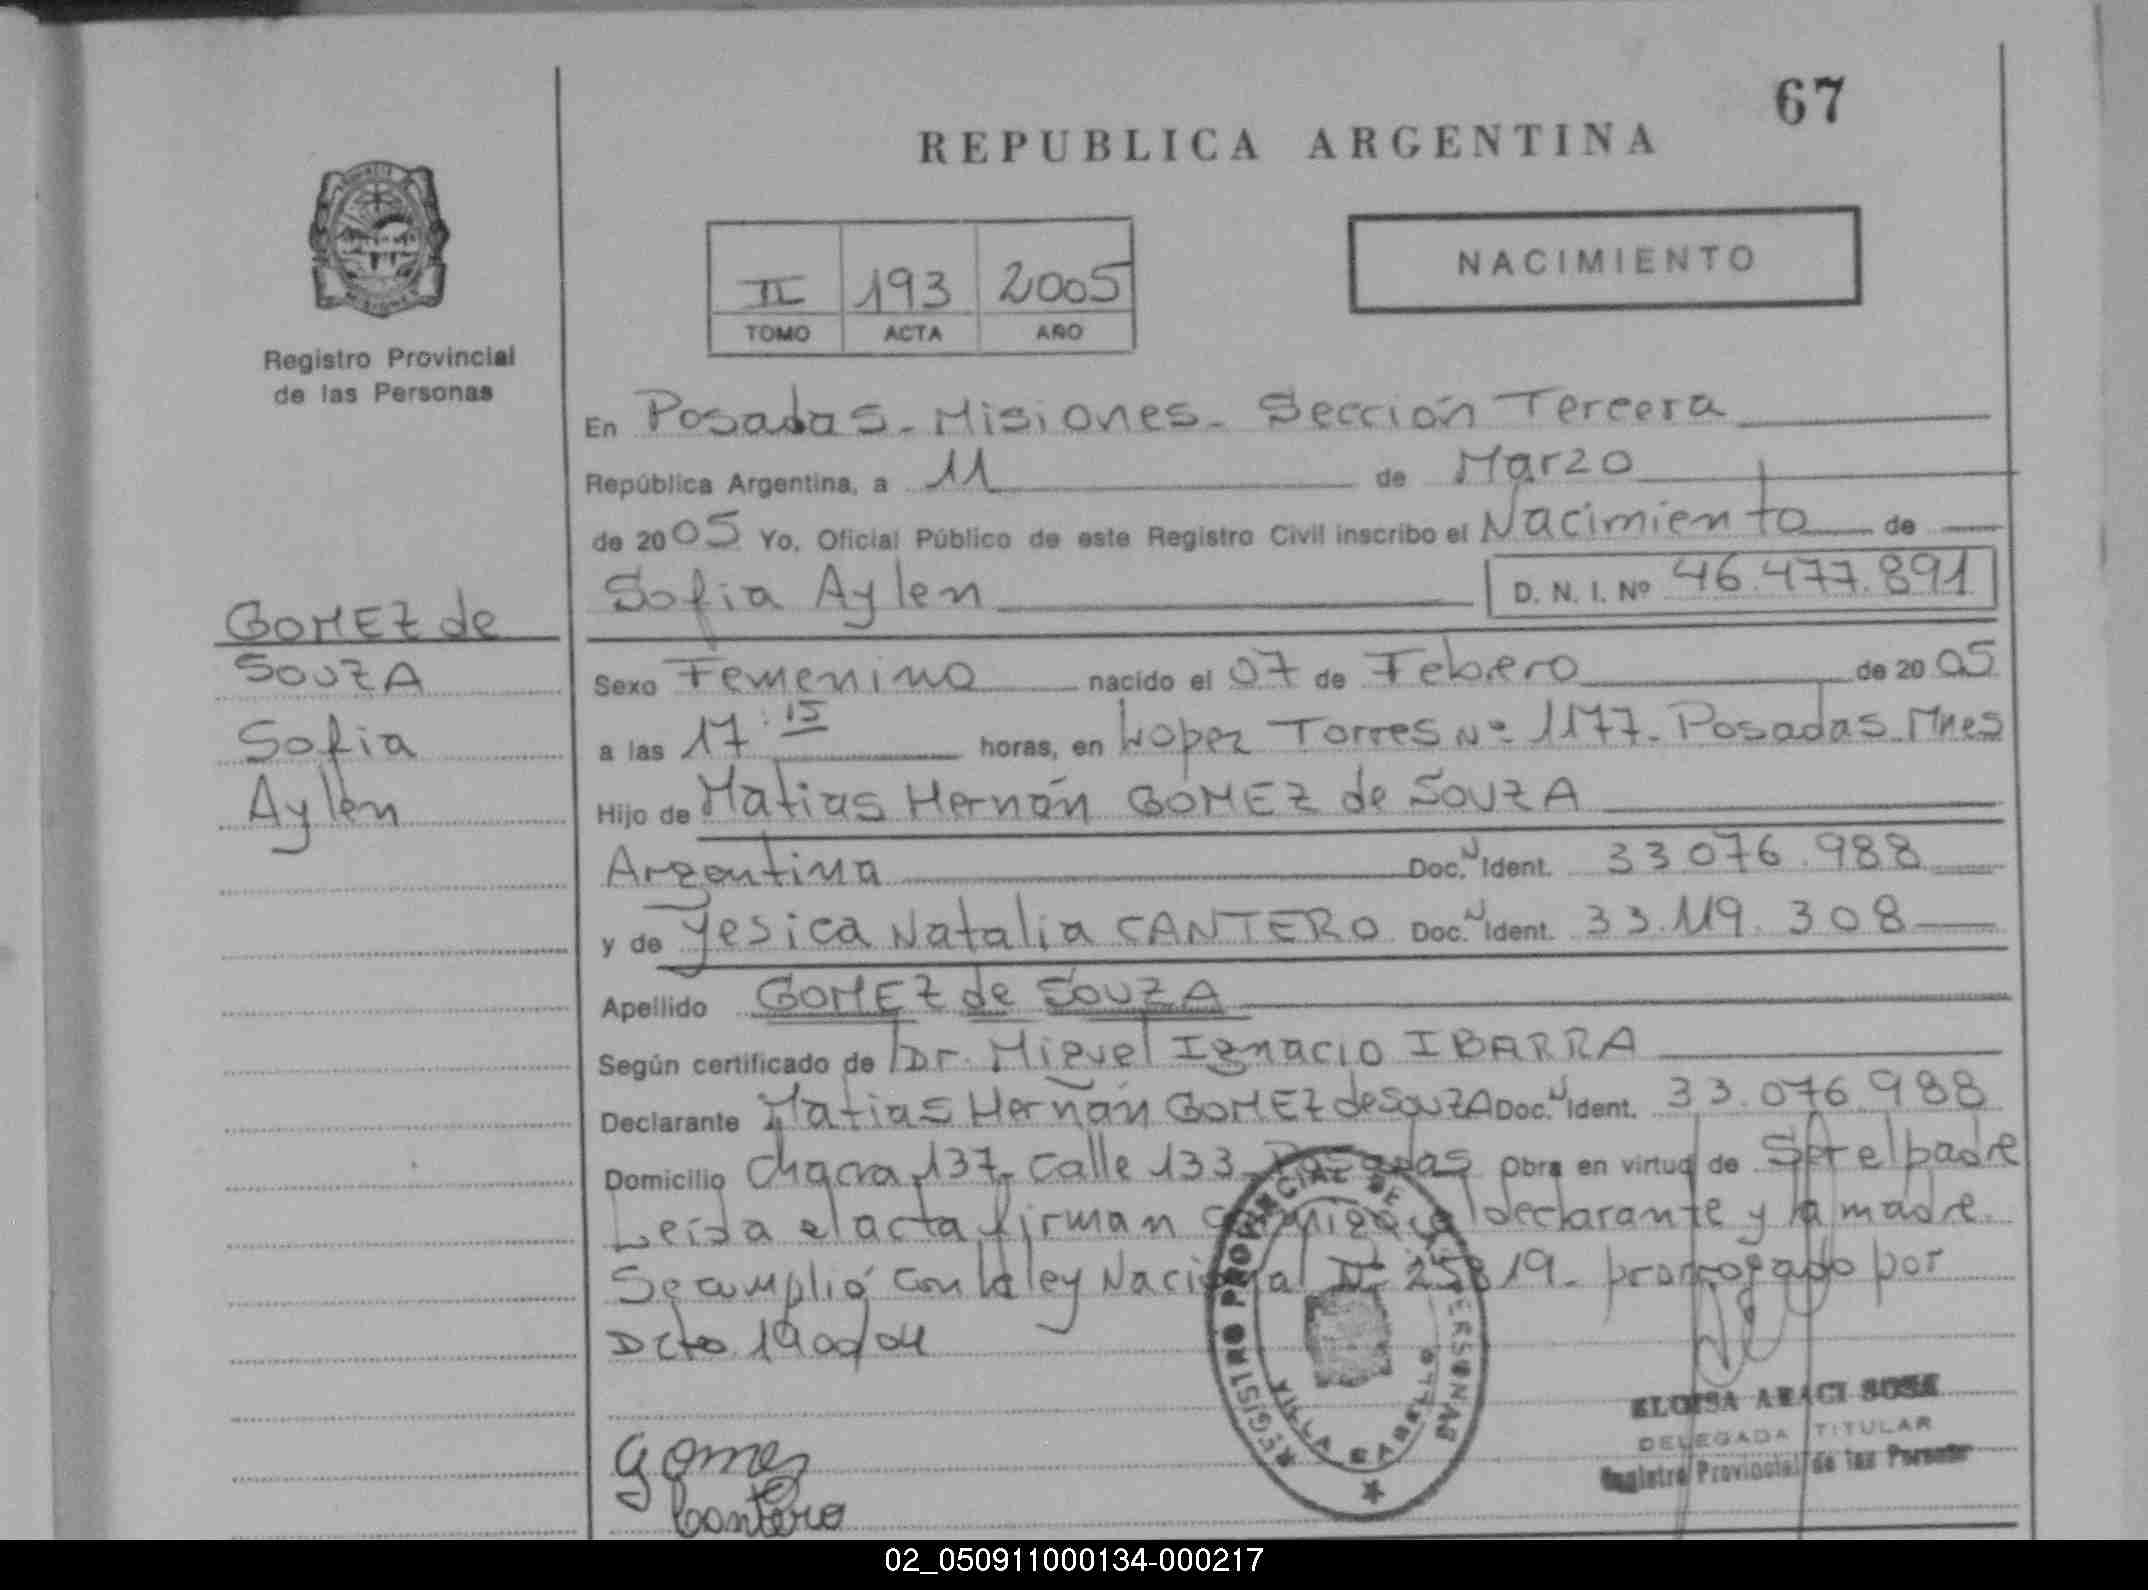 67
REPUBLICA ARGENTINA
NACIMIENTO
II 193 2005
TOMO ACTA AÑO
Registro Provincial
de las Personas
En Posadas - Misiones - Sección Tercera
República Argentina, a 11 de Marzo
de 2005 Yo, Oficial Público de este Registro Civil inscribo el Nacimiento de
Sofia Aylen D. N. I. Nº 46.477.891
GOMEZ de
SOUZA
Sofia
Aylen
Sexo Femenino nacido el 07 de Febero de 2005
a las 17:15 horas, en Lopez Torres Nº 1177 - Posadas Mnes
Hijo de Matias Hernán GOMEZ de SOUZA
Argentina Doc. N Ident. 33.076.988
y de Yesica Natalia CANTERO Doc. N Ident. 33.119.308
Apellido GOMEZ de SOUZA
Según certificado de Dr. Miguel Ignacio IBARRA
Declarante Matias Hernán GOMEZ de SOUZA Doc. N Ident. 33.076.988
Domicilio Chacra 137 - Calle 133 - Posadas Obra en virtud de Ser el padre
Leida el acta firman conmigo el declarante y la madre.
Se cumplió con la ley Nacional Nº 25819 - prorrogado por
Dcto 1900/04
REGISTRO PROVINCIAL DE LAS PERSONAS
VILLA CABELLO
ELOISA ARACI SOSA
DELEGADA TITULAR
Registro Provincial de las Personas
Gomez
Cantero
02_050911000134-000217